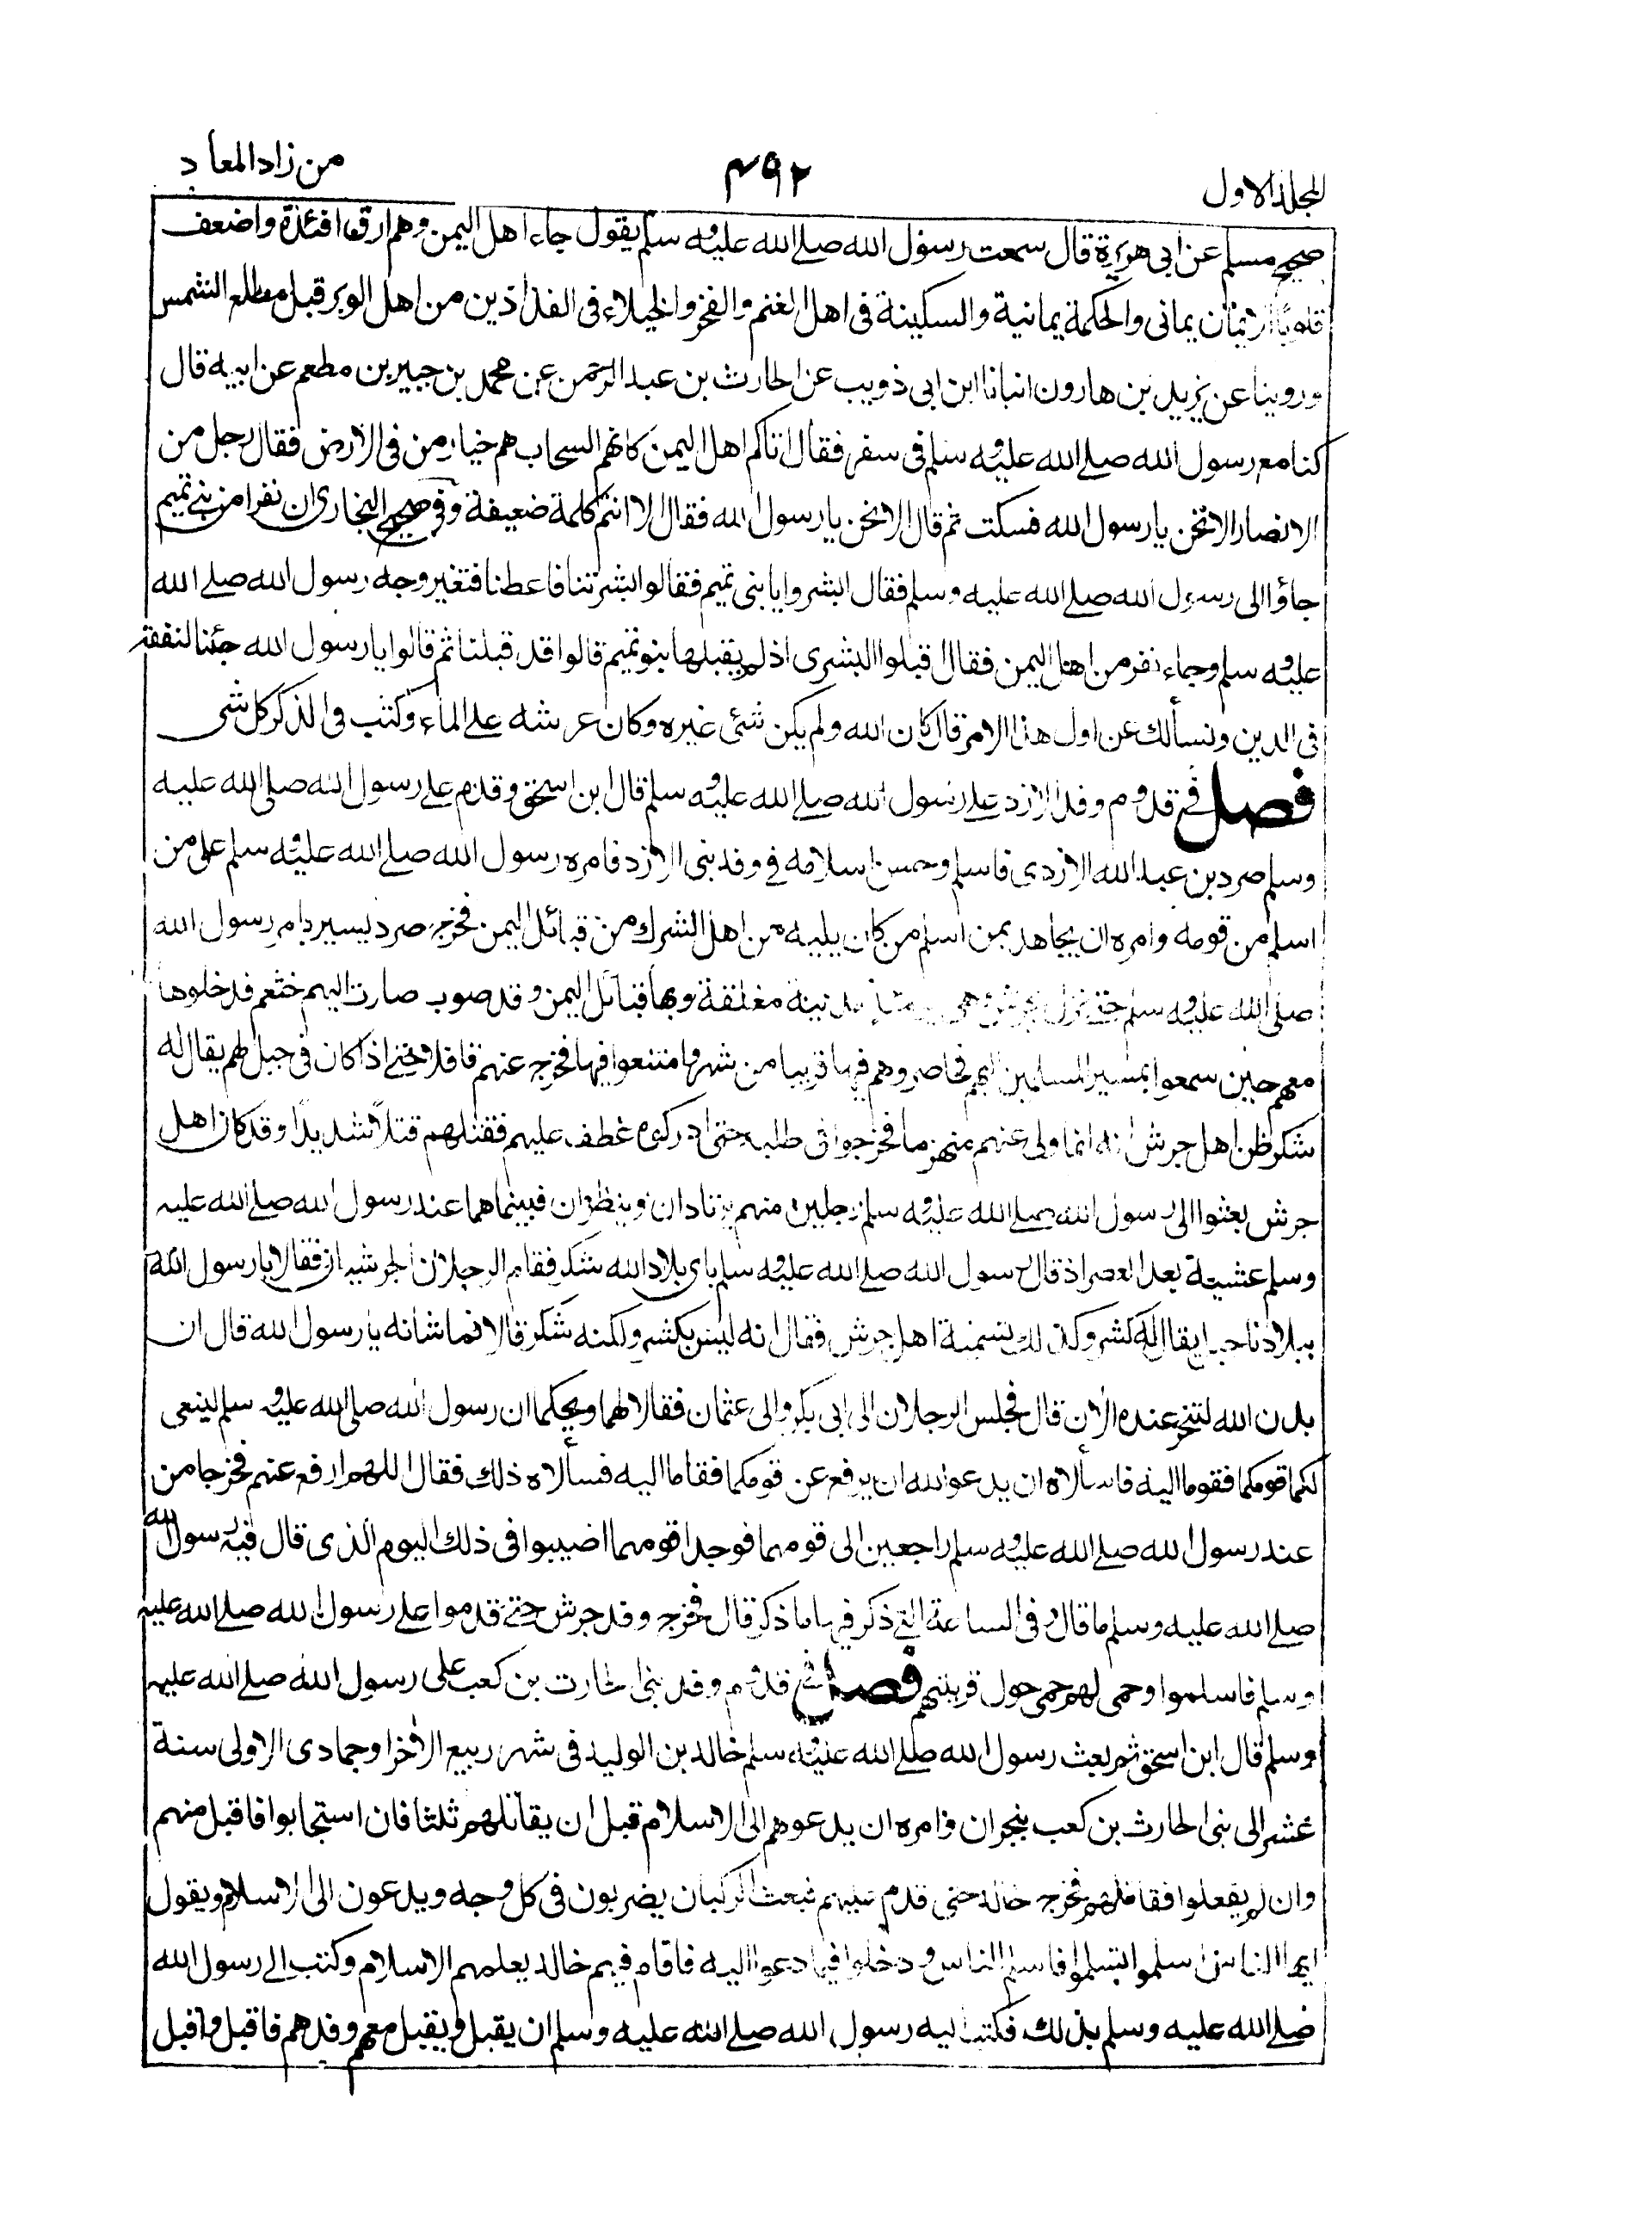 المجلد الاول
۴۹۲
من زاد المعاد
صحيح مسلم عن ابى هريرة قال سمعت رسول الله صلے الله عليه وسلم يقول جاء اهل اليمن وهم ارق افئدة واضعف
قلوبا الايمان يمانى والحكمة يمانية والسكينة فى اهل الغنم والفخر والخيلاء فى الفدادين من اهل الوبر قبل مطلع الشمس
وروينا عن يزيد بن هارون انبانا ابن ابى ذويب عن الحارث بن عبد الرحمن عن محمد بن جبير بن مطعم عن ابيه قال
كنا مع رسول الله صلے الله عليه وسلم فى سفر فقال اتاكم اهل اليمن كانهم السحاب هم خيار من فى الارض فقال رجل من
الانصار الا نحن يا رسول الله فسكت ثم قال الا نحن يا رسول الله فقال الا انتم كلمة ضعيفة وفى صحيح البخارى ان نفرا من بنے تميم
جاؤا الى رسول الله صلے الله عليه وسلم فقال ابشروا يا بنى تميم فقالوا ابشرتنا فاعطنا فتغير وجه رسول الله صلے الله
عليه وسلم وجاء نفر من اهل اليمن فقال اقبلوا البشرى اذ لم يقبلها بنو تميم قالوا قد قبلنا ثم قالوا يا رسول الله جئنا لنتفقه
فى الدين ونسألك عن اول هذا الامر قال كان الله ولم يكن شئى غيره وكان عرشه علے الماء وكتب فى الذكر كل شى
فصل فے قدوم وفد الازد علے رسول الله صلے الله عليه وسلم قال ابن اسحق وقدم علے رسول الله صلى الله عليه
وسلم صرد بن عبد الله الازدى فاسلم وحسن اسلامه فے وفد بنى الازد فامره رسول الله صلے الله عليه وسلم على من
اسلم من قومه وامره ان يجاهد بمن اسلم من كان يليه من اهل الشرك من قبائل اليمن فخرج صرد يسير بامر رسول الله
صلى الله عليه وسلم حتے نزل بجرش وهى يومئذ مدينة مغلقة وبها قبائل اليمن وقد صوب صارت اليهم خثعم فدخلوها
معهم حين سمعوا بمسير المسلمين اليهم فحاصروهم فيها قريبا من شهر وامتنعوا فيها فخرج عنهم قافلا حتى اذا كان فى جبل لهم يقال له
شكر ظن اهل جرش انه انما ولى عنهم منهزما فخرجوا فى طلبه حتى ادركوه عطف عليهم فقتلهم قتلا شديدا وقد كان اهل
جرش بعثوا الى رسول الله صلے الله عليه وسلم رجلين منهم يرتادان وينظران فبينما هما عند رسول الله صلے الله عليه
وسلم عشية بعد العصر اذ قال رسول الله صلے الله عليه وسلم باى بلاد الله شكر فقام الرجلان الجرشيان فقالا يا رسول الله
ببلادنا جبل يقال له كشر وكذلك تسمية اهل جرش فقال انه ليس بكشر ولكنه شكر قالا فما شانه يا رسول الله قال ان
بدن الله لتنحر عنده الآن قال فجلس الرجلان الى ابى بكر والى عثمان فقالا لهما ويحكما ان رسول الله صلى الله عليه وسلم لينعى
لكما قومكما فقوما اليه فاسألاه ان يدعو الله ان يرفع عن قومكما فقاما اليه فسألاه ذلك فقال اللهم ارفع عنهم فخرجا من
عند رسول الله صلے الله عليه وسلم راجعين الى قومهما فوجدا قومهما اصيبوا فى ذلك اليوم الذى قال فيه رسول الله
صلے الله عليه وسلم ما قال وفى الساعة التے ذكر فيها ما ذكر قال فخرج وفد جرش حتے قدموا علے رسول الله صلے الله عليه
وسلم فاسلموا وحمى لهم حمى حول قريتهم فصل فے قدوم وفد بنى الحارث بن كعب على رسول الله صلے الله عليه
وسلم قال ابن اسحق ثم بعث رسول الله صلے الله عليه وسلم خالد بن الوليد فى شهر ربيع الآخر او جمادى الاولى سنة
عشر الى بنى الحارث بن كعب بنجران وامره ان يدعوهم الى الاسلام قبل ان يقاتلهم ثلثا فان استجابوا فاقبل منهم
وان لم يفعلوا فقاتلهم فخرج خالد حتى قدم عليهم فبعث الركبان يضربون فى كل وجه ويدعون الى الاسلام ويقول
ايها الناس اسلموا لتسلموا فاسلم الناس ودخلوا فيما دعوا اليه فاقام فيهم خالد يعلمهم الاسلام وكتب الے رسول الله
صلے الله عليه وسلم بذلك فكتب اليه رسول الله صلے الله عليه وسلم ان يقبل ويقبل معهم وفدهم فاقبل واقبل